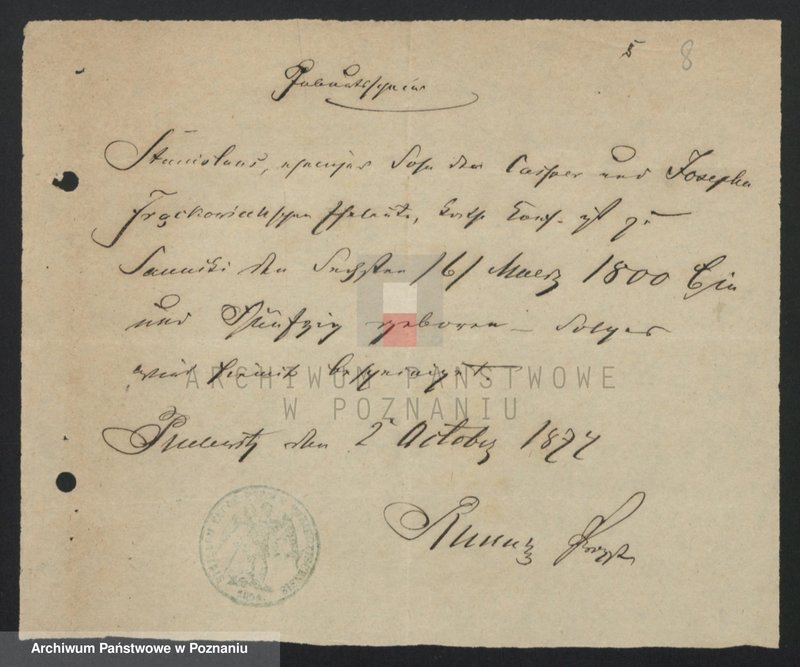 5 8
Geburtsschein
Stanislaus, ehelicher Sohn der Casper und Josepha
Frąckowiakschen Eheleute, kath. Conf. ist zu
Sanniki den Sechsten /6/ Maerz 1800 Ein
und Fünfzig geboren – Solches
wird hiemit bescheinigt
ARCHIWUM PAŃSTWOWE
W POZNANIU
Pudewitz den 2 October 1874
Probst
Archiwum Państwowe w Poznaniu